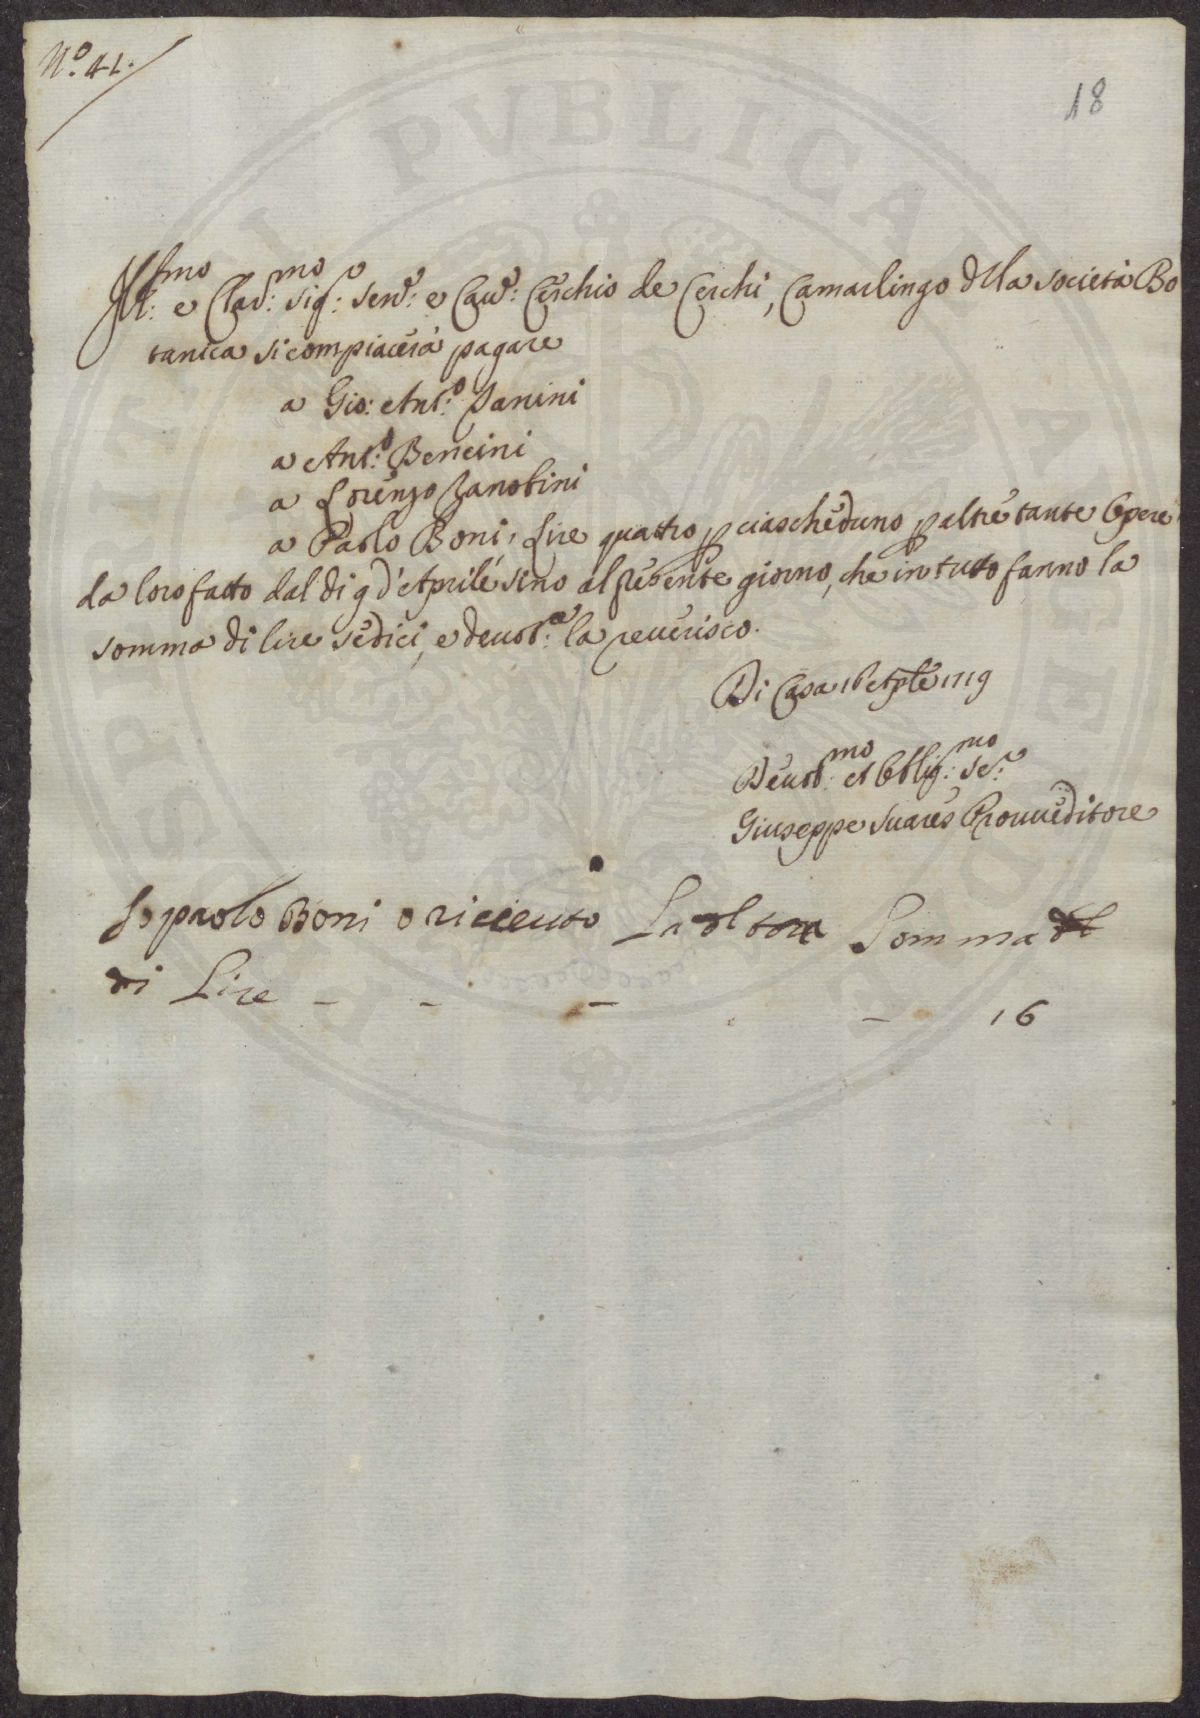 N.º 41.
18
Ill:mo e Clar:mo Sig:r Sen:r e Cav:r Cerchio de Cerchi, Camarlingo della Società Bo
tanica si compiacerà pagare
a Gio: Ant:o Janini
a Ant:o Bencini
a Lorenzo Zanobini
a Paolo Boni, Lire quattro p ciascheduno p altretante Opere
da loro fatto dal dì 9 d'Aprile sino al presente giorno, che in tutto fanno la
somma di lire sedici, e devot:e la reverisco.
Di Casa 16 Aple 1719
Devot:mo et Obblig:mo Se:r
Giuseppe Suares Provveditore
Io paolo Boni o riceuto La Somma
di Lire - - - - 16
PVBLICA